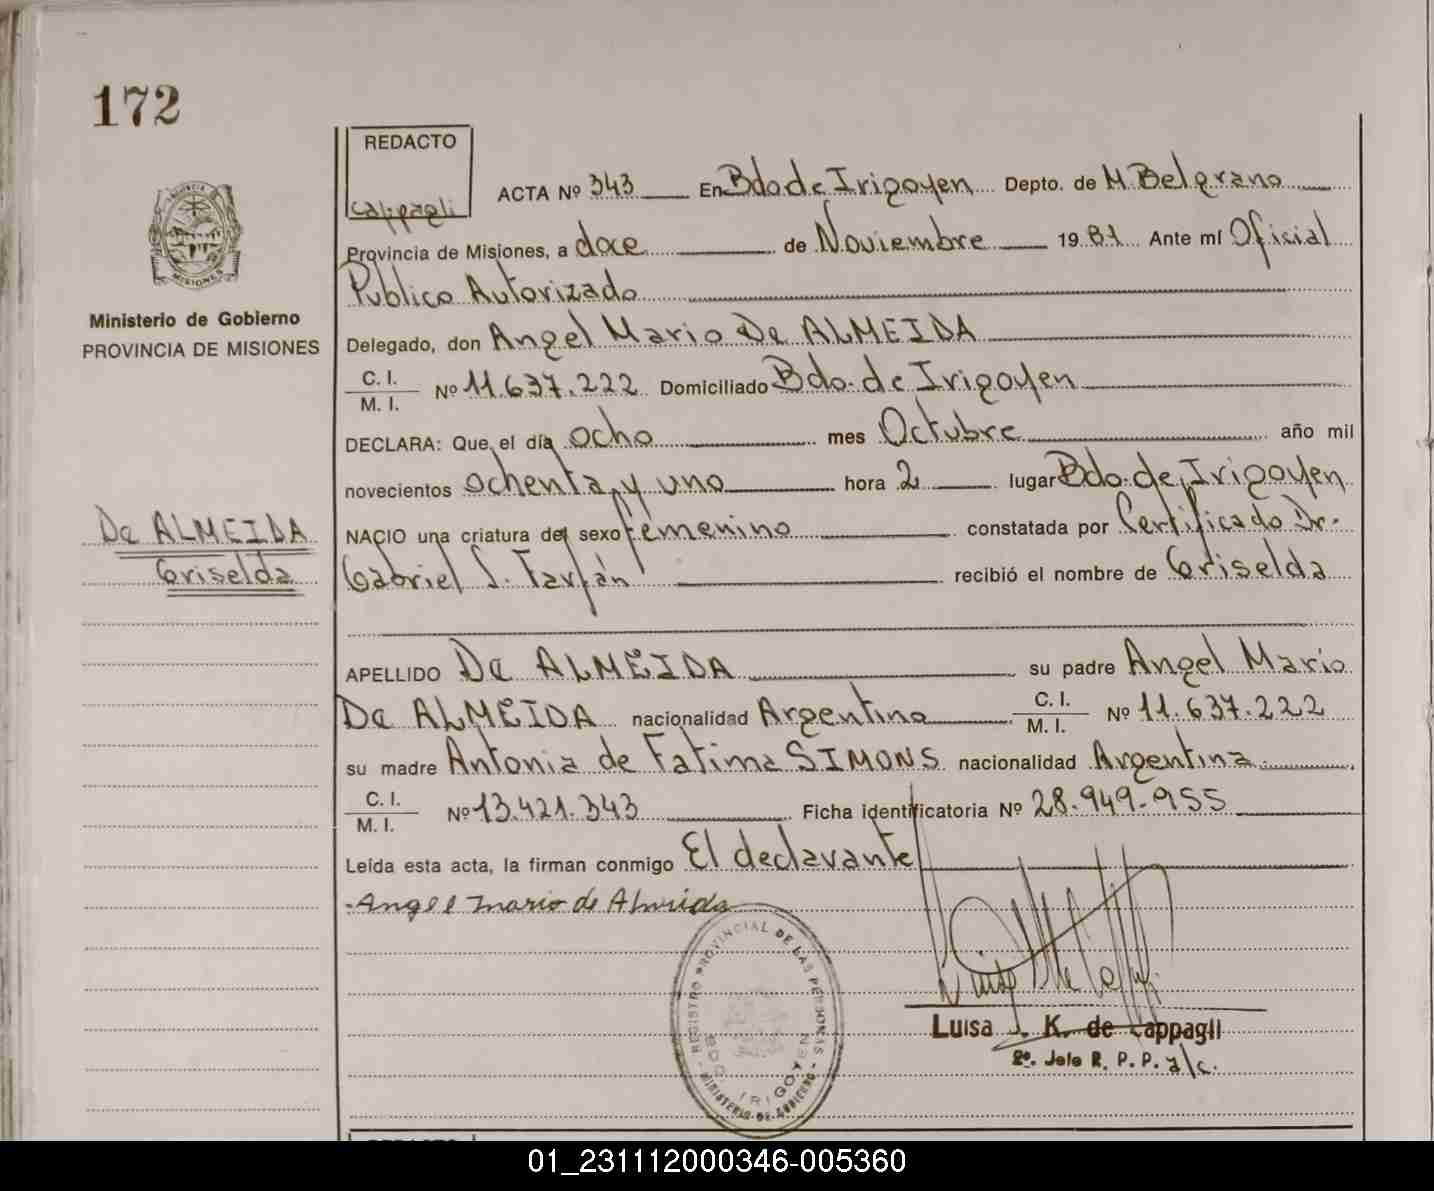 172
REDACTO
Cappagli
ACTA Nº 343 En Bdo de Irigoyen Depto. de M. Belgrano
Provincia de Misiones, a doce de Noviembre 1981 Ante mí Oficial
Publico Autorizado
Delegado, don Angel Mario De ALMEIDA
C. I.
M. I. Nº 11.637.222 Domiciliado Bdo. de Irigoyen
DECLARA: Que el día ocho mes Octubre año mil
novecientos ochenta y uno hora 2 lugar Bdo. de Irigoyen
NACIO una criatura del sexo femenino constatada por Certificado Dr.
Gabriel S. Farfán recibió el nombre de Griselda
APELLIDO De ALMEIDA su padre Angel Mario
De ALMEIDA nacionalidad Argentina C. I.
M. I. Nº 11.637.222
su madre Antonia de Fatima SIMONS nacionalidad Argentina
C. I.
M. I. Nº 13.421.343 Ficha identificatoria Nº 28.949.955
Leída esta acta, la firman conmigo El declarante
Angel Mario de Almeida
Luisa J. K. de Cappagli
2º. Jefe R. P. P. a/c.
REGISTRO PROVINCIAL DE LAS PERSONAS
BDO. IRIGOYEN
MINISTERIO DE GOBIERNO
PROVINCIA
MISIONES
Ministerio de Gobierno
PROVINCIA DE MISIONES
De ALMEIDA
Griselda
01_231112000346-005360